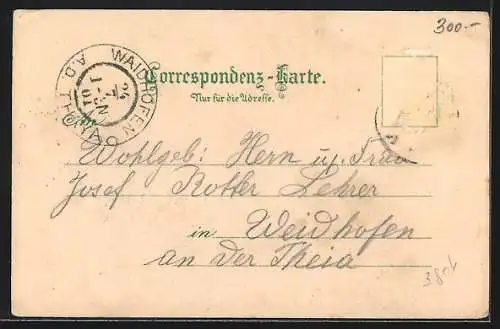 300.-
Correspondenz-Karte.
Nur für die Adresse.
WAIDHOFEN A.D. THAYA
Wohlgeb: Herrn u. Frau
Josef Rotter Lehrer
in Weidhofen
an der Theia